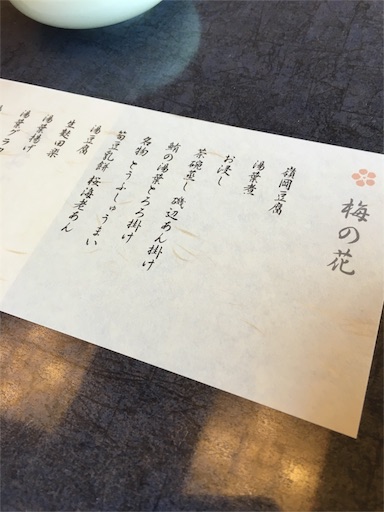 梅の花
嶺岡豆腐
湯葉煮
お浸し
茶碗蒸し 磯辺あん掛け
鮪の湯葉とろろ掛け
名物 とうふしゅうまい
筍豆乳餅 桜海老あん
湯豆腐
生麩田楽
湯葉揚げ
湯葉グラ